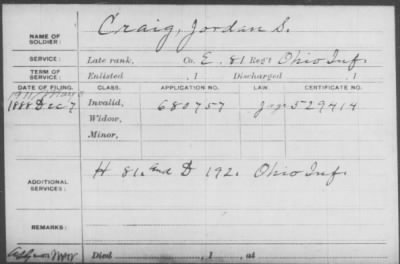 NAME OF SOLDIER: Craig, Jordan S.
SERVICE: Late rank, Co. E. 81 Reg't Ohio Inf.
TERM OF SERVICE: Enlisted , 1 Discharged , 1
DATE OF FILING. CLASS. APPLICATION NO. LAW. CERTIFICATE NO.
1888 Dec 7 Invalid, 680757 529414
Widow,
Minor,
ADDITIONAL SERVICES: H 81. and D 192. Ohio Inf.
REMARKS:
Died , 1 , at